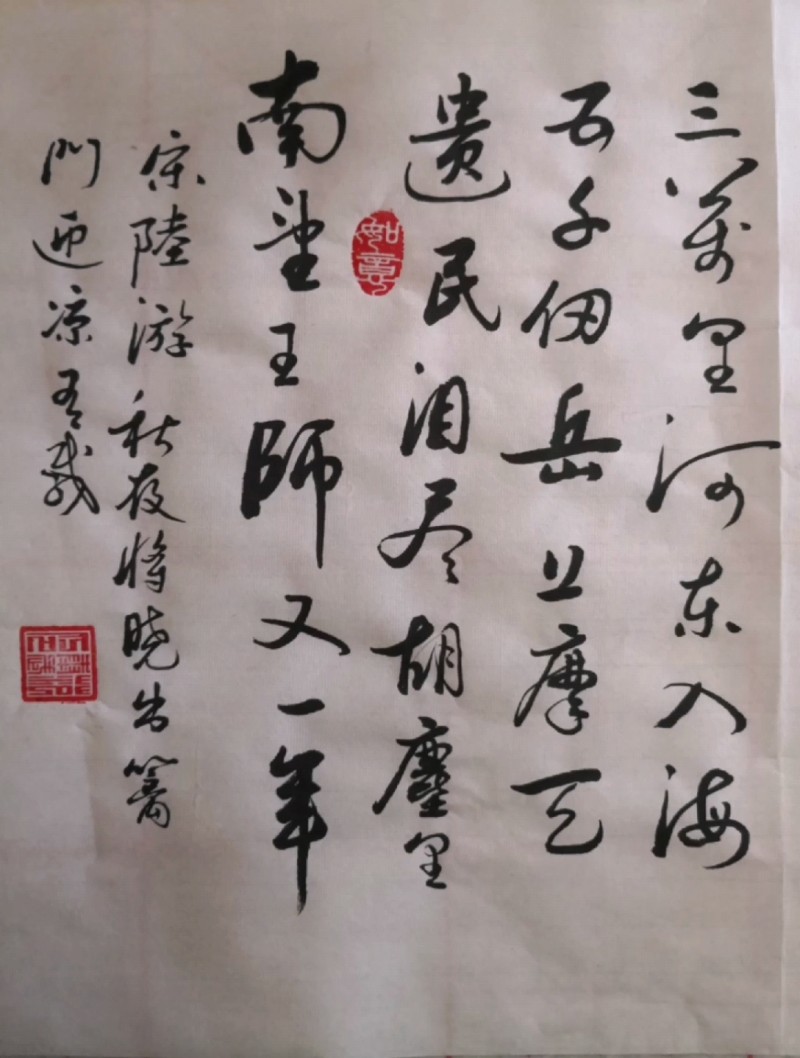 三萬里河东入海
五千仞岳上摩天
遗民泪尽胡塵里
如意
南望王師又一年
宋陸游秋夜将晓出篱
門迎凉有感